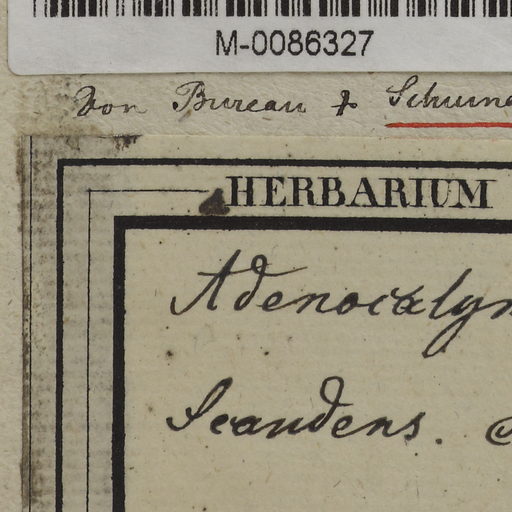 M-0086327
Von Bureau & Schum
HERBARIUM
Adenocalym
Scandens.